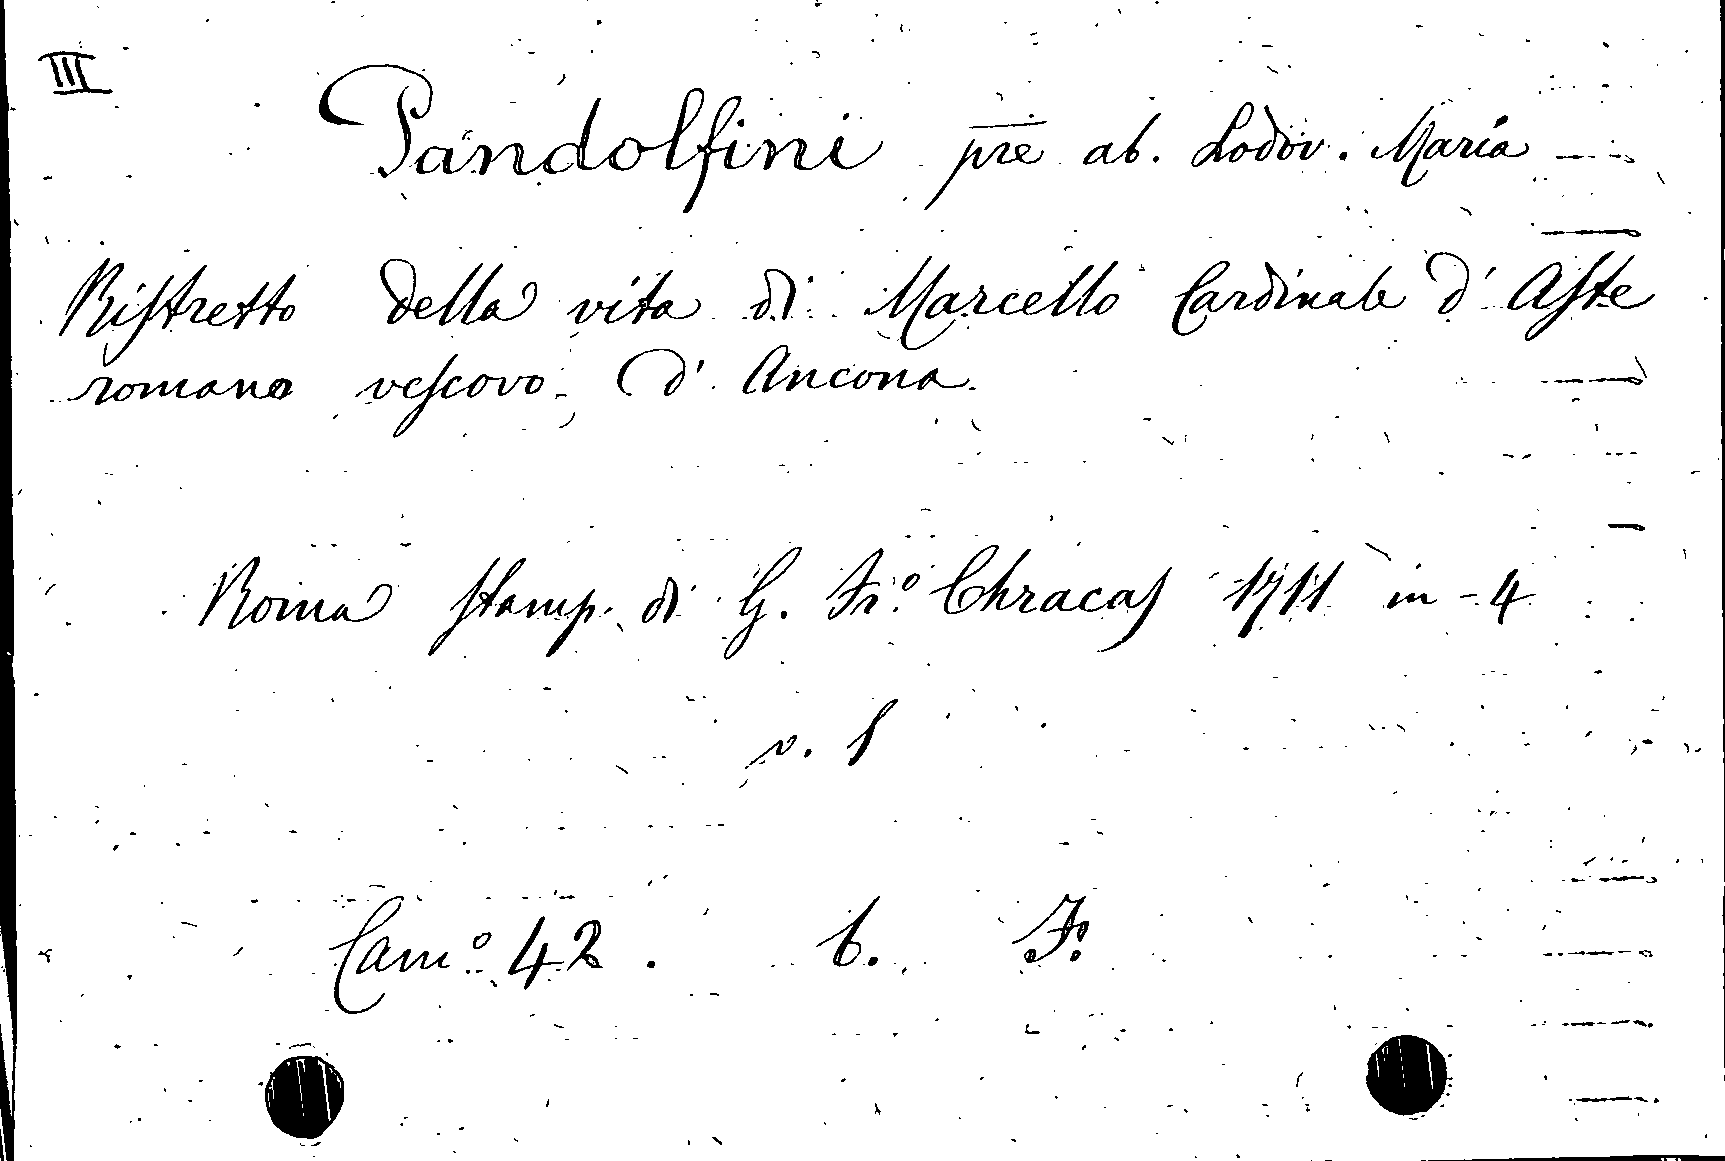 III
Pandolfini pre ab. Lodov. Maria
Ristretto della vita di Marcello Cardinale d' Aste
romano vescovo d' Ancona.
Roma stamp. di G. Fr.º Chracas 1711 in-4
v. 1
Cam.º 42. b. F.